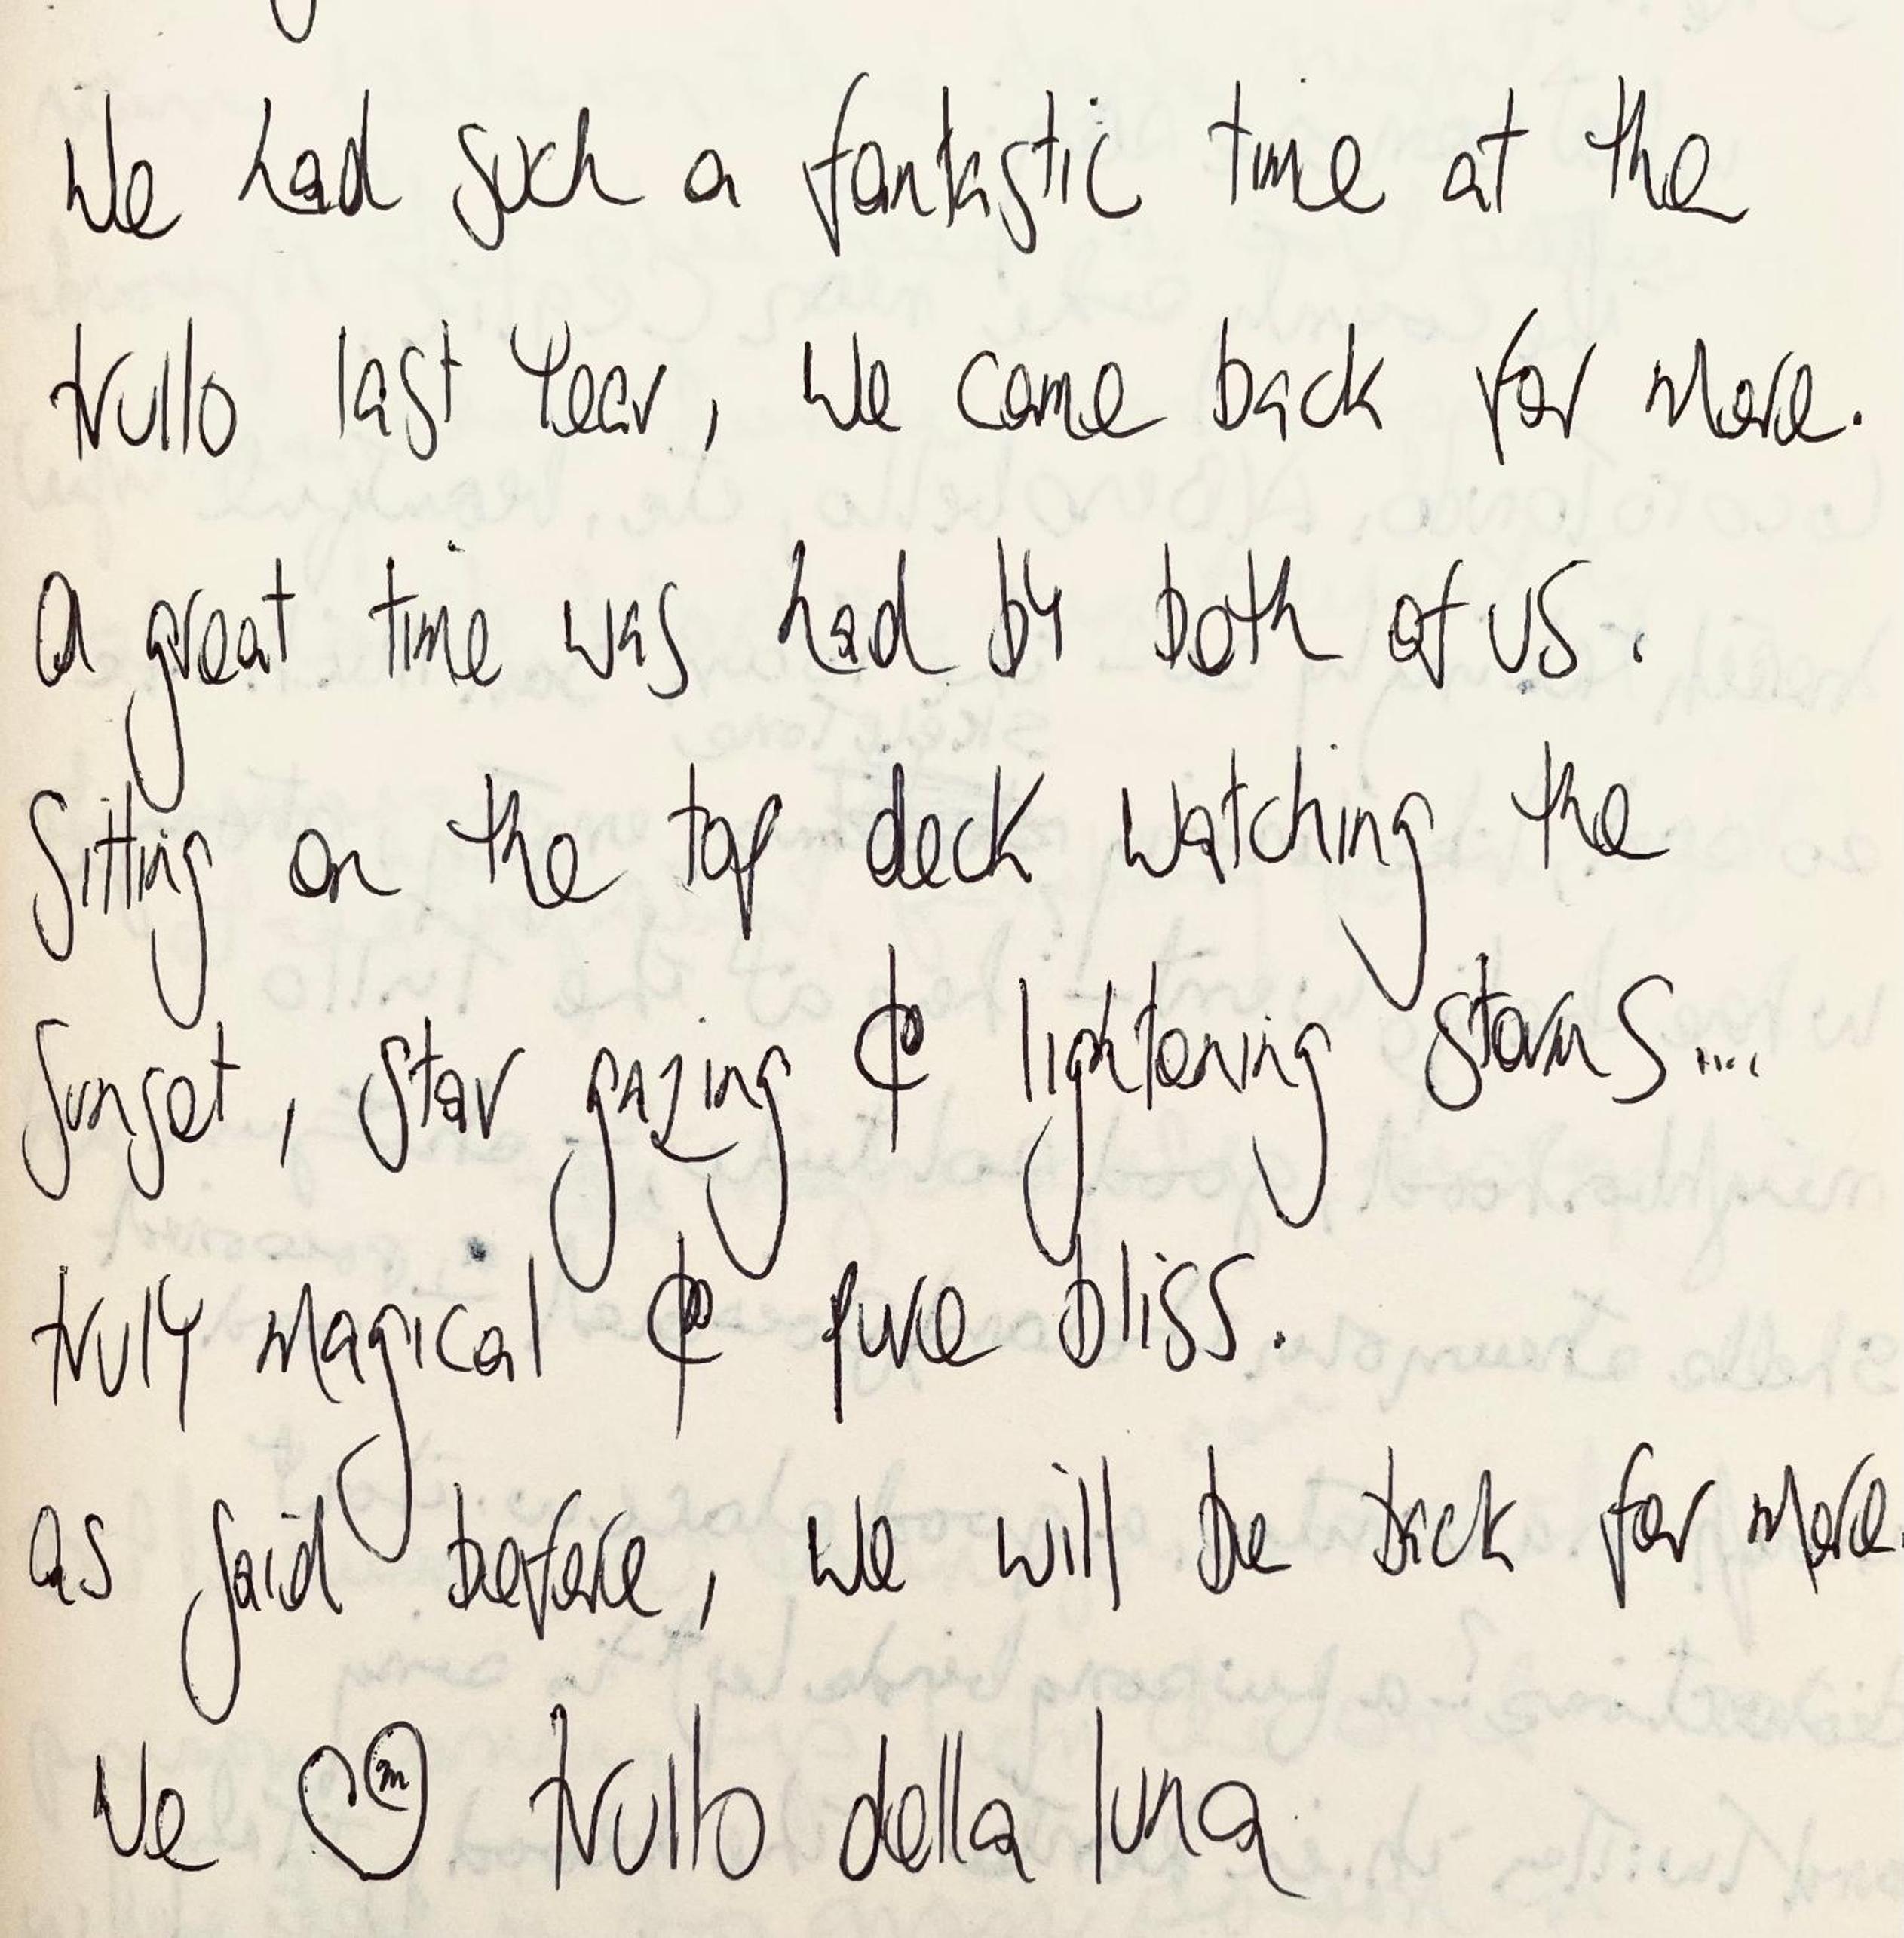 We had such a fantastic time at the
trullo last Year, we came back for more.
a great time was had by both of us.
Sitting on the top deck watching the
Sunset, star gazing & lightening storms....
truly magical & pure bliss.
as said before, we will be back for more.
We ♡ trullo della luna